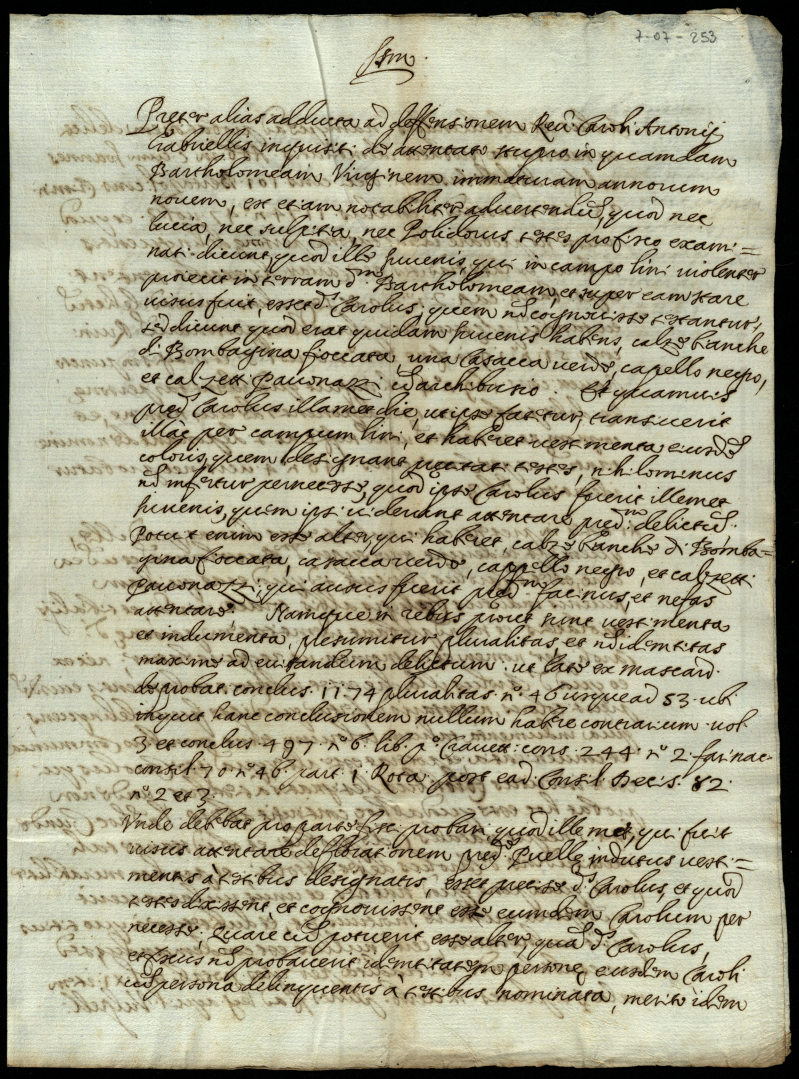 7-07-253
Preter alias adducta ad deffensionem Reu. Caroli Antonij
Gabriellis inquisiti de attentato stupro in quamdam
Bartholomeam Virginem immaturam annorum
nouem, est etiam notabiliter aduertendũ, quod nec
lucia, nec sulpitia, nec Polidorus testes pro fisco exami=
nati dicunt, quod ille Iuuenis, qui in campo lini violenter
proiecit in terram dm Bartholomeam, et super eam stare
uisus fuit, esset ds Carolus, quem nõ cognouisse testantur,
sed dicunt quod erat quidam Iuuenis habens calze bianche
di Bombagina fioccata una Casacca uerde, capello negro,
et calzetti pauonazzi cũ archibusio. Et quamuis
pred Carolus illamet die, ut ipse fatetur, transiuerit
illac per campum lini, et haberet uestimenta eiusdẽ
coloris, quem designant testes, nihilominus
nõ infertur pernecesse, quod ipse Carolus fuerit illemet
Iuuenis, quem ipsi uiderunt attentare predm delictũ.
Potuit enim esse alter, qui haberet calze bianche di Bomba=
gina fioccata, casacca uerde, cappello negro, et calzetti
pauonazzi, qui ausus fuerit predm facinus, et nefas
attentare. Namque in rebus prout sunt uestimenta
et indumenta, presumitur pluralitas, et nõ idemtitas
maxime ad euitandum delictum. ut late ex mascard.
de probat. conclus. 1174 pluralitas no. 46 usque ad 53. ubi
inquit hanc conclusionem nullum habere contrarium. uol.
3. et conclus. 497. no 6. lib. po. Crauett: cons. 244. no 2. farinac.
consil. 70. no 46. part. 1. Rota post ead. Consil. Decis. 82.
no 2 et 3.
Vnde debebat pro parte fisci probari, quod illemet, qui fuit
uisus attentare defflorationem pred Puelle indutus uesti=
mentis à testibus designatis, esset precise ds Carolus, et quod
testes dixissent, et cognouissent esse eumdem Carolum per
necesse. Quare cũ potuerit esse alter, quã ds Carolus,
et fiscus nõ probauerit idemtitatem persone eiusdem Caroli
cũ persona delinquentis a testibus nominata, merito idem